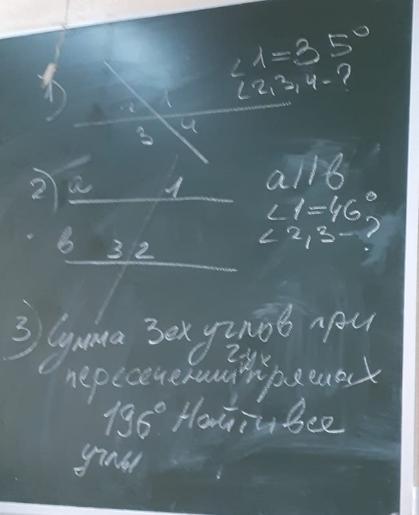 1) ∠1=35°
∠2,3,4-?
2 1
3 4
2) a 1 a||b
∠1=46°
b 3 2 ∠2,3-?
3) Сумма 3ех углов при
пересечении 2-ух прямых
196° Найти все
углы